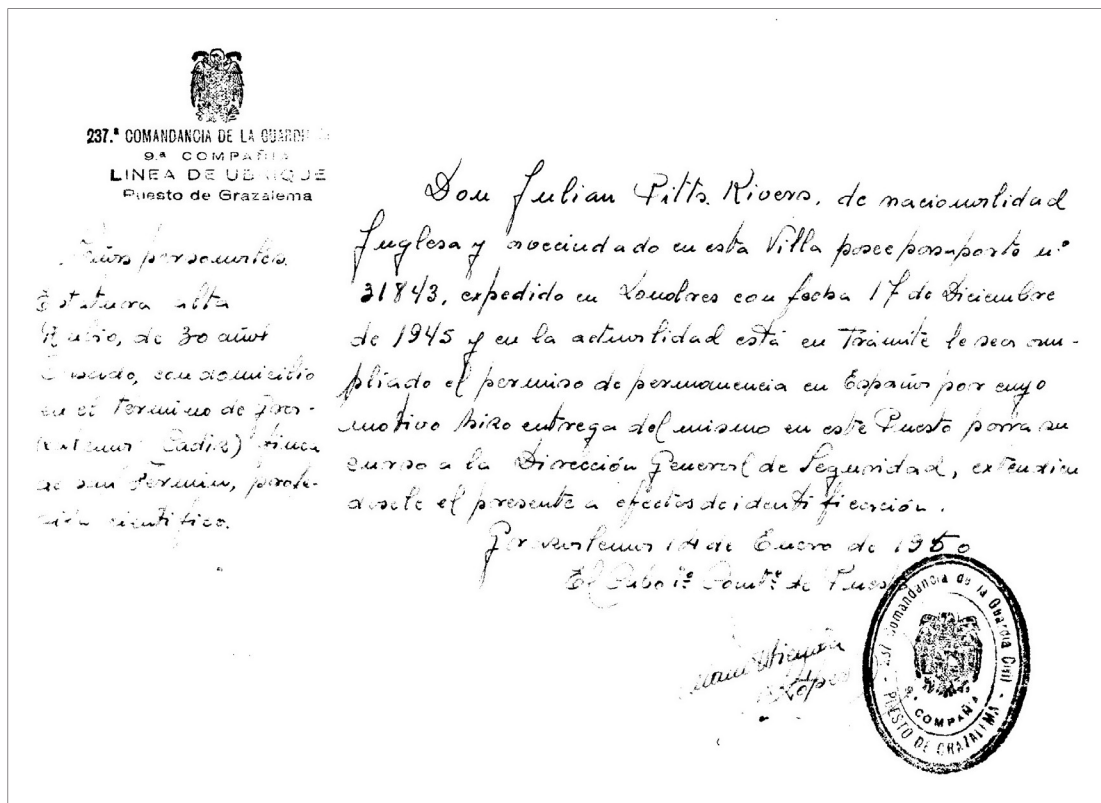 237.ª COMANDANCIA DE LA GUARDIA
9.ª COMPAÑIA
LINEA DE UBRIQUE
Puesto de Grazalema
Señas personales.
Estatura alta
Rubio, de 30 años
Casado, con domicilio
en el Termino de Gra-
zalema (Cadiz) finca
de san Fermin, profe-
sión cientifico.
Don Julian Pitts. Rivers, de nacionalidad
Inglesa y avecindado en esta Villa posee pasaporte nº
31843, expedido en Londres con fecha 17 de Diciembre
de 1945 y en la actualidad está en Trámite le sea am-
pliado el permiso de permanencia en España por cuyo
motivo hizo entrega del mismo en este Puesto para su
curso a la Dirección General de Seguridad, extendien
dosele el presente a efectos de identificación.
Grazalema 14 de Enero de 1950
El Cabo 1º Comtº de Puesto
López
237 Comandancia de la Guardia Civil
9.ª COMPAÑIA
PUESTO DE GRAZALEMA